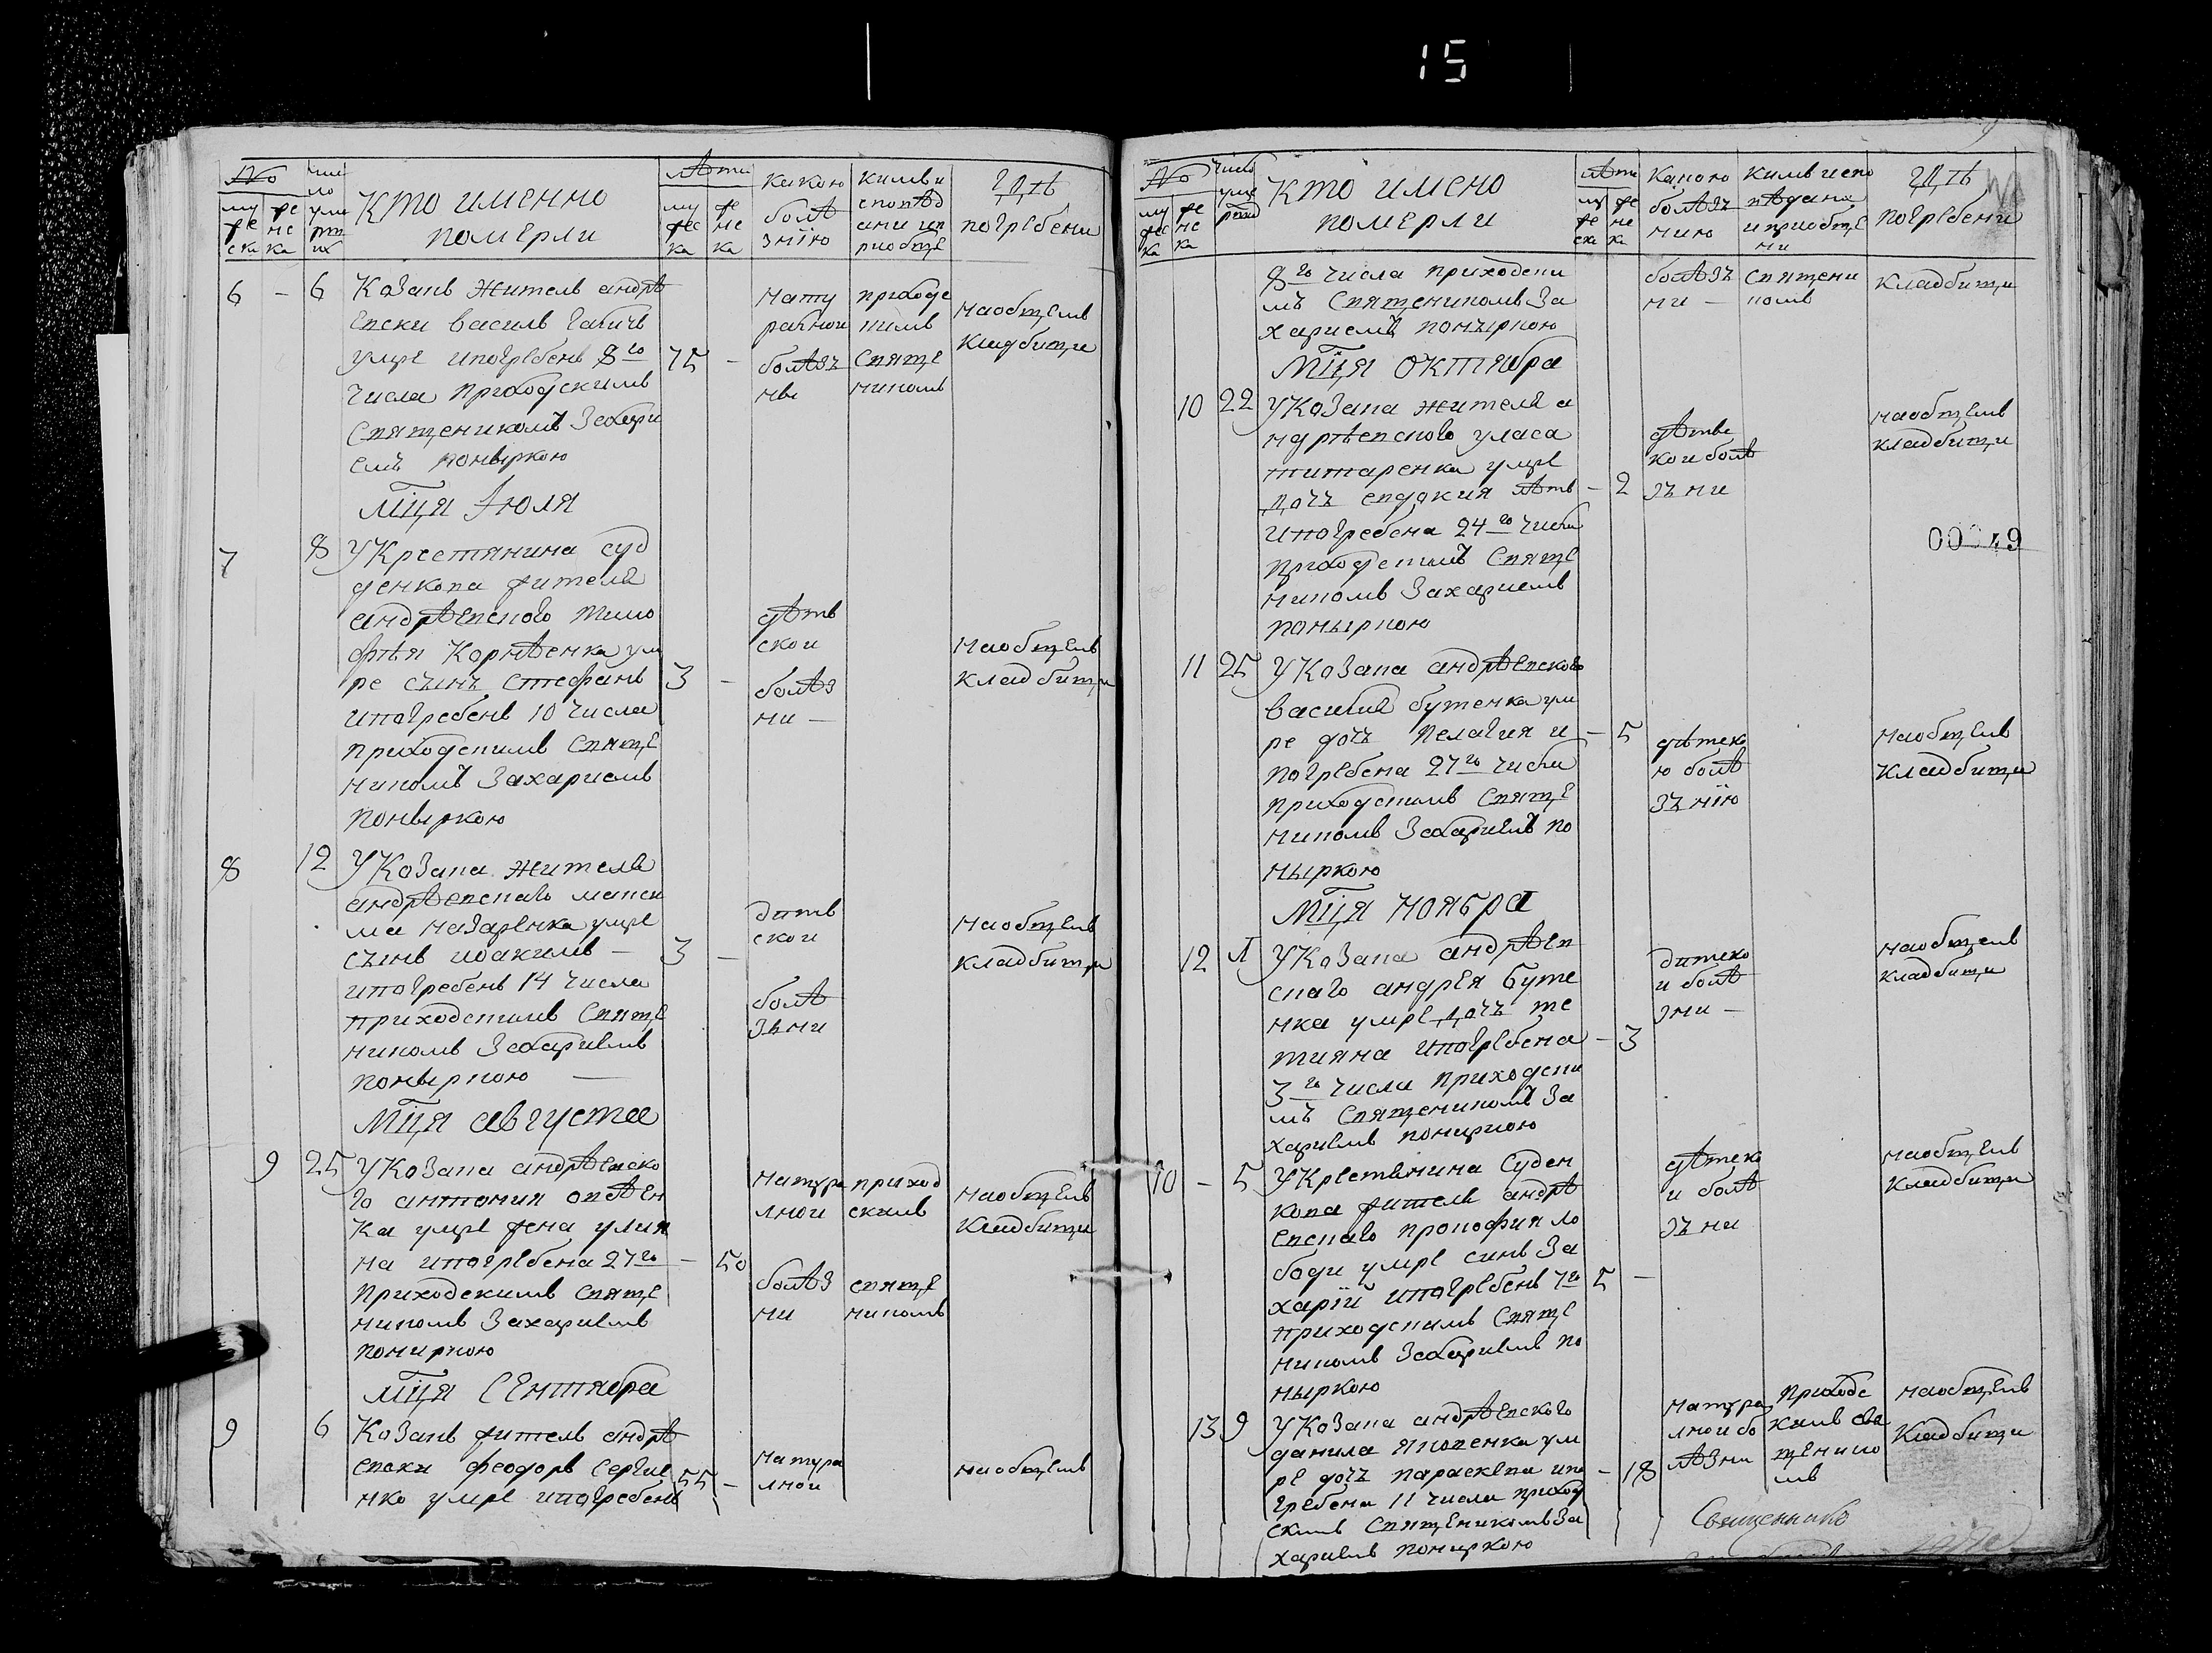 15
№
му
же
ска
же
не
ка
чи
ло
уме
рш
их
Кто именно
померли
лѣти
му
жес
ка
же
не
ка
какою
болѣ
знїю
кимъ и
сповѣд
ани ип
риобще
гдѣ
погребени
6 – 6 Козакъ житель андрѣ
евски василь
умре ипогребенъ 8го
числа приходскимъ
священикомъ Захари
емъ поныркою
75 –
нату
ралнои
болѣзъ
ны
приходс
кимъ
свяще
никомъ
наобщемъ
кладбищи
Мїця Июля
7 8 У Крестянина суд
денкова жителя
андрѣевского тимо
фѣя Корнѣенка ум
ре сынъ стефанъ
ипогребенъ 10 числа
приходскимъ свяще
никомъ Захариемъ
поныркою
3 –
дѣтв
скои
болѣз
ни –
наобщемъ
кладбищи
8 12 У Козака жителя
андрѣевскаго макси
ма назаренка умре
сынъ иоакимъ –
ипогребенъ 14 числа
приходскимъ свяще
никомъ Захариемъ
поныркою –
3 –
дитв
скои
болѣ
зьни
наобщемъ
кладбищи
Мїця августа
9 25 У Козака андрѣевско
го антония
ка умре жена улия
на ипогребена 27го
приходскимъ свяще
никомъ Захариемъ
поныркою
– 50
натура
лнои
болѣз
ни
приход
скимъ
свяще
никомъ
наобщемъ
кладбищи
Мїця Сентября
9 6 Козакъ житель андрѣ
евски феодоръ сергие
нко умре ипогребенъ
55 –
натура
лнои
наобщемъ
№
му
жес
ка
же
не
ка
число
умер
Кто имено
померли
лѣти
му
же
ска
же
не
ка
какою
болѣзъ
нию
кимъ испо
вѣдана
иприобще
ни
гдѣ
погребени
8го числа приходски
мъ священикомъ За
хариемъ поныркою
болѣзъ
ни –
священи
комъ
кладбищи
Мїця октября
10 22 У Козака жителя а
ндрѣевского уласа
титаренка умре
дочъ евдокия лѣтъ
ипогребена 24го числа
приходскимъ свяще
никомъ Захариемъ
поныркою
– 2
дѣтвс
кои болѣ
зъни
наобщемъ
кладбищи
11 25 У Козака андрѣевского
василия бутенка ум
ре дочъ пелагия и
погребена 27го числа
приходскимъ свяще
никомъ Захариемъ по
ныркою
– 5
дѣтско
ю болѣ
зънїю
наобщемъ
кладбищи
Мїця ноября
12 1 У Козака андрѣев
скаго андрея буте
нка умре дочъ те
тияна ипогребена
3го числа приходски
мъ священикомъ За
хариемъ поныркою
– 3
дитско
и болѣ
зни –
наобщемъ
кладбищи
10 – 5 У Крестянина Суден
кова жителя андрѣ
евскаго прокофия ло
боди умре синъ За
харїй ипогребенъ 7го
приходскимъ свяще
никомъ Захариемъ по
ныркою
5 –
дѣтско
и болѣ
зъни
наобщемъ
кладбищи
13 9 У Козака андрѣевского
данила яковенка ум
ре дочъ параскева ипо
гребена 11 числа приход
скимъ священикомъ За
хариемъ поныркою
– 18
натура
лнои бо
лѣзни
приходс
кимъ свя
щенико
мъ
наобщемъ
кладбищи
Священникъ